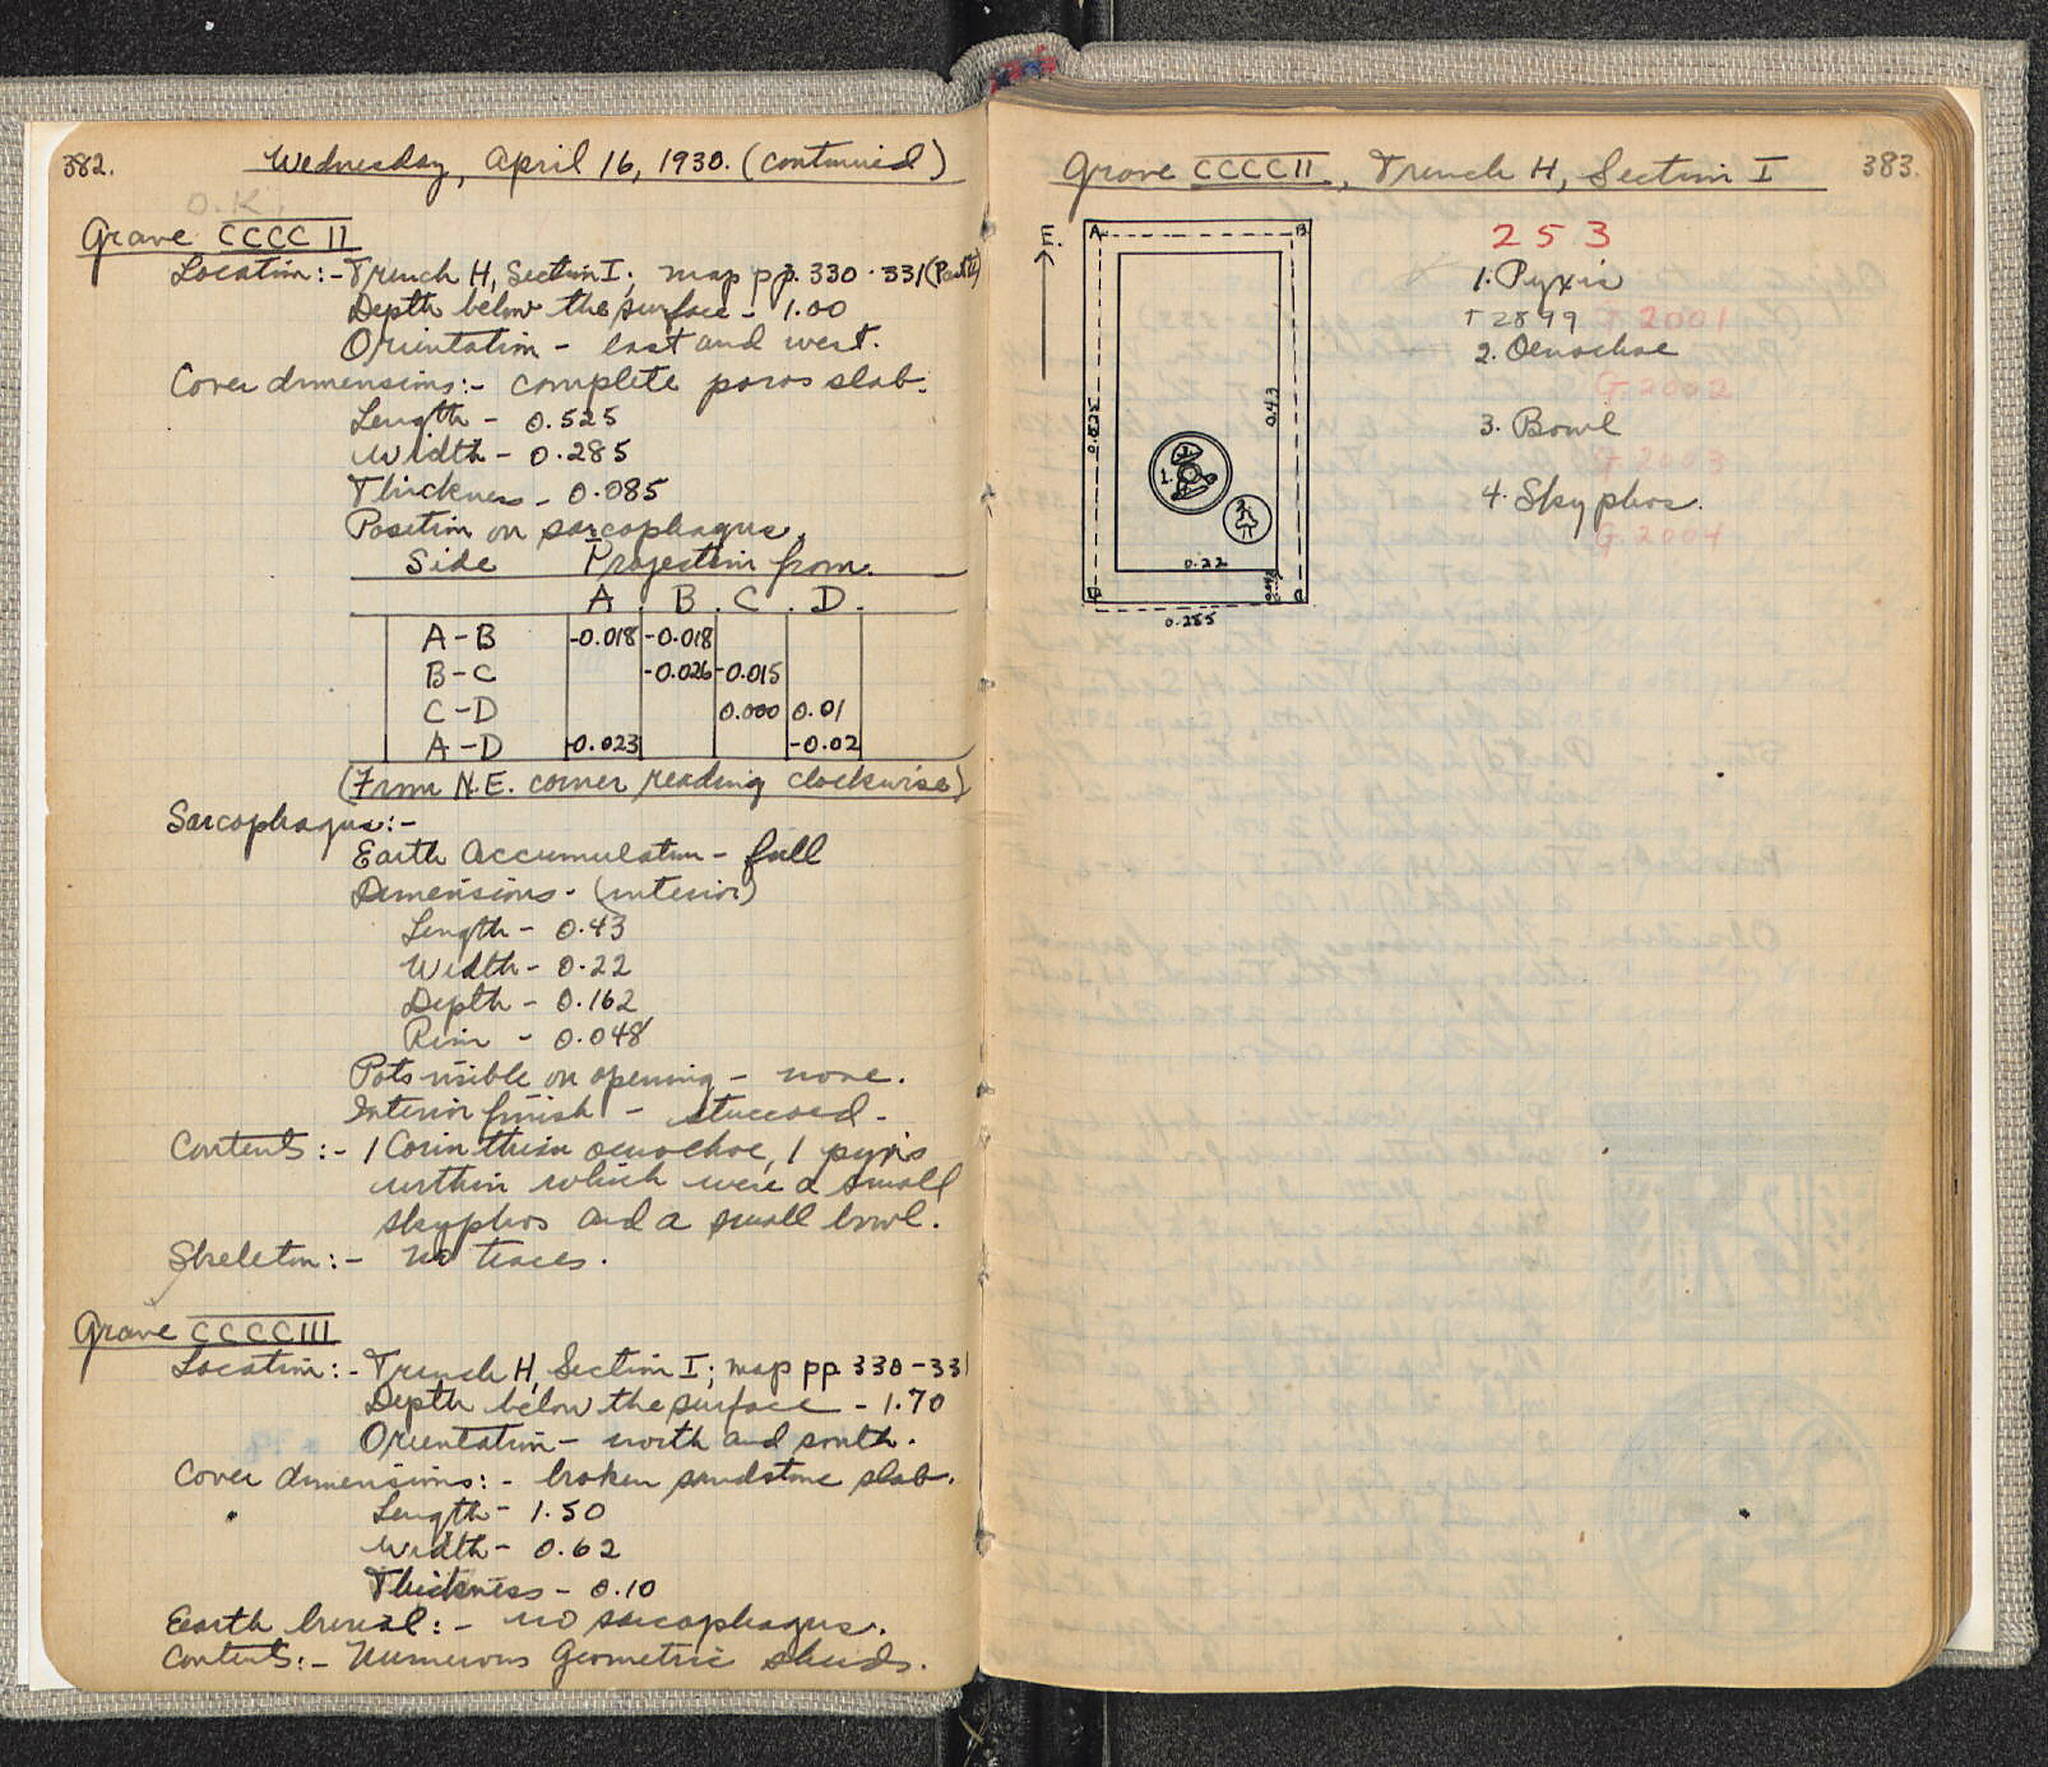 382.
Wednesday, April 16, 1930. (continued)
O.K.
Grave CCCC II
Location:- Trench H, Section I; map pp. 330-331 (Part II)
Depth below the surface - 1.00
Orientation - east and west.
Cover dimensions:- complete poros slab.
Length - 0.525
Width - 0.285
Thickness - 0.085
Position on sarcophagus.
Side Projection from.
A. B. C. D.
A-B -0.018 -0.018
B-C -0.026 -0.015
C-D 0.000 0.01
A-D -0.023 -0.02
(From N.E. corner reading clockwise)
Sarcophagus:-
Earth Accumulation - full
Dimensions - (interior)
Length - 0.43
Width - 0.22
Depth - 0.162
Rim - 0.048
Pots visible on opening - none.
Interior finish - stuccoed.
Contents:- 1 Corinthian oenochoe, 1 pyxis
within which were a small
skyphos and a small bowl.
Skeleton:- no traces.
Grave CCCCIII
Location:- Trench H, Section I; map pp 330-331
Depth below the surface - 1.70
Orientation - north and south.
Cover dimensions:- broken sandstone slab.
Length - 1.50
Width - 0.62
Thickness - 0.10
Earth burial:- no sarcophagus.
Contents:- Numerous Geometric sherds.
Grave CCCCII, Trench H, Section I
383.
E.
A B
0.525
0.43
1.
2.
0.22
0.048
D C
0.285
253
1. Pyxis
T 2899 T 2001
2. Oenochoe
T 2002
3. Bowl
T 2003
4. Skyphos.
T 2004